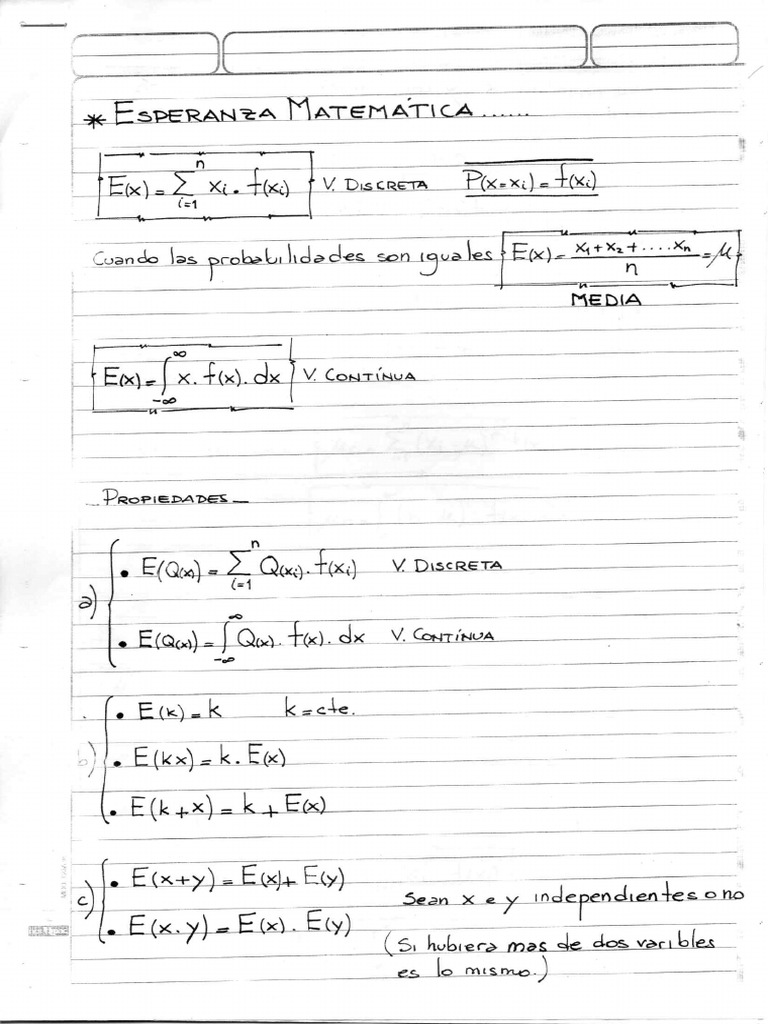 * ESPERANZA MATEMÁTICA......
E(x) = n∑i=1 xi . f(xi) V. DISCRETA P(x=xi) = f(xi)
Cuando las probabilidades son iguales E(x) = (x1+x2+....xn)/n = μ
MEDIA
E(x) = ∫-∞^∞ x. f(x). dx V. CONTÍNUA
PROPIEDADES
a) • E(Q(x)) = n∑i=1 Q(xi). f(xi) V. DISCRETA
• E(Q(x)) = ∫-∞^∞ Q(x). f(x). dx V. CONTÍNUA
b) • E(k) = k k = cte.
• E(kx) = k. E(x)
• E(k+x) = k + E(x)
c) • E(x+y) = E(x) + E(y)
Sean x e y independientes o no
• E(x.y) = E(x). E(y)
(Si hubiera mas de dos varibles
es lo mismo.)